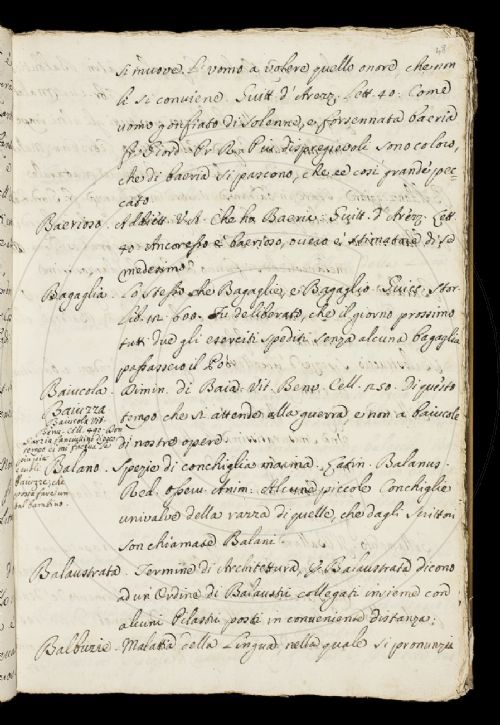 38
si muove l'uomo a volere quello onore, che non
li si conviene. Guitt. d'Arezz. Lett. 40. Come
uomo gonfiato di solenne, e forsennata baeria
Fr. Giord. Pr. R. Più dispregevoli sono coloro,
che di baeria si pascono, che è cosi grande pec-
cato
Baerioso. Addiett. V. A. Che ha Baeria. Guitt. d'Arezz. Lett.
40. Ancoresso è baerioso, di se
medesimo
Bagaglia. Lo stesso che Bagaglie, e Bagaglio. Guicc. Stor.
lib. 12. 600. Fu deliberato, che il giorno prossimo
tutt. due gli eserciti spediti senza alcuna bagaglia
passassero il Po
Baiucola. Dimin. di Baia. Vit. Benv. Cell. 250. Di questo
tempo che si attende alla guerra e non a baiucole
di nostre opere
Baiuzza
Baiucola Vit.
Benv. Cell. 492. Don
Garzia fanciullino d'
baiuzze, che
possa fare un
tal bambino.
Balano. Spezie di conchiglia marina. Latin. Balanus.
Red. Osserv. Anim. Alcune piccole Conchiglie
univalve della razza di quelle, che dagli Scrittori
son chiamate Balani.
Balaustrata. Termine di Architettura, e Balaustrata dicono
ad un Ordine di Balaustri collegati insieme con
alcuni Pilastri, posti in conveniente distanza.
Balbuzie. Malattia della Lingua nella quale si pronunzia